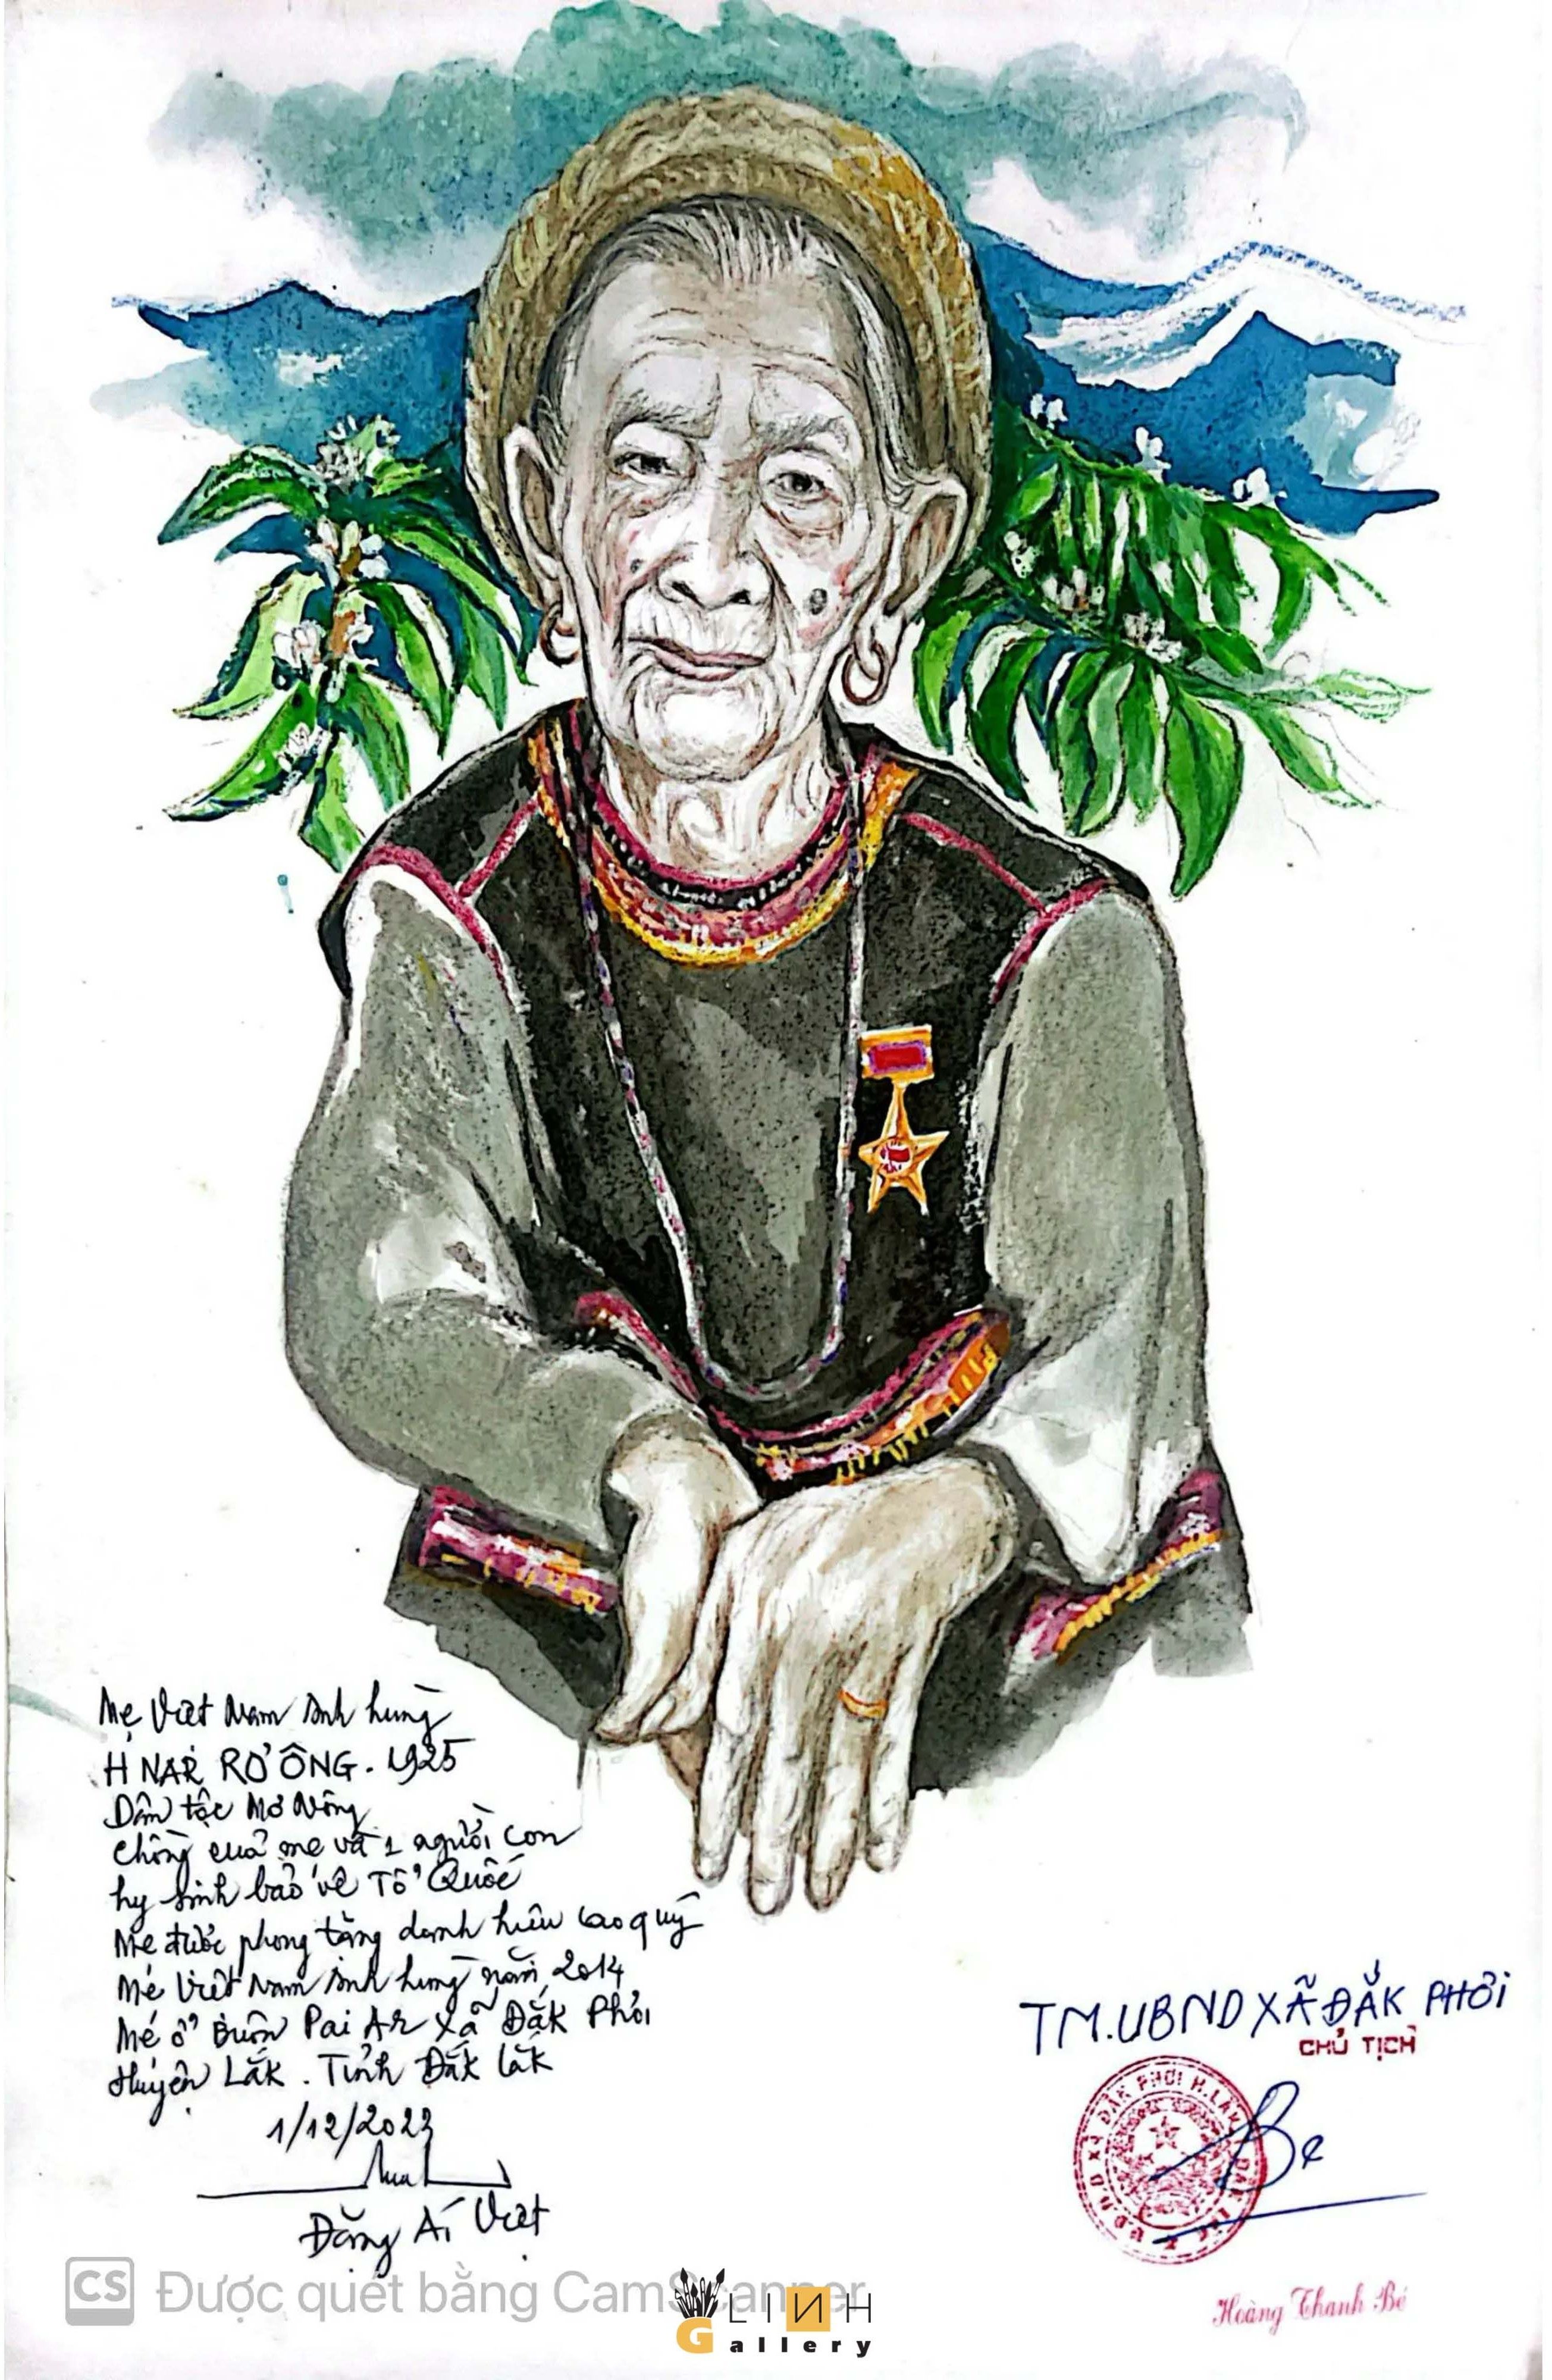 Mẹ Việt Nam Anh hùng
H NAR RƠ ÔNG. 1925
Dân tộc Mơ Nông
chồng của mẹ và 1 người con
hy sinh bảo vệ Tổ Quốc
Mẹ được phong tặng danh hiệu cao quý
Mẹ Việt Nam Anh hùng năm 2014
Mẹ ở Buôn Pai Ar xã Đắk Phơi
Huyện Lắk. Tỉnh Đắk Lắk
1/12/2023
Đặng Ái Việt
TM.UBND XÃ ĐẮK PHƠI
CHỦ TỊCH
U.B.N.D XÃ ĐẮK PHƠI H.LẮK
Bé
Hoàng Thanh Bé
CS Được quét bằng CamScanner
LINH
Gallery